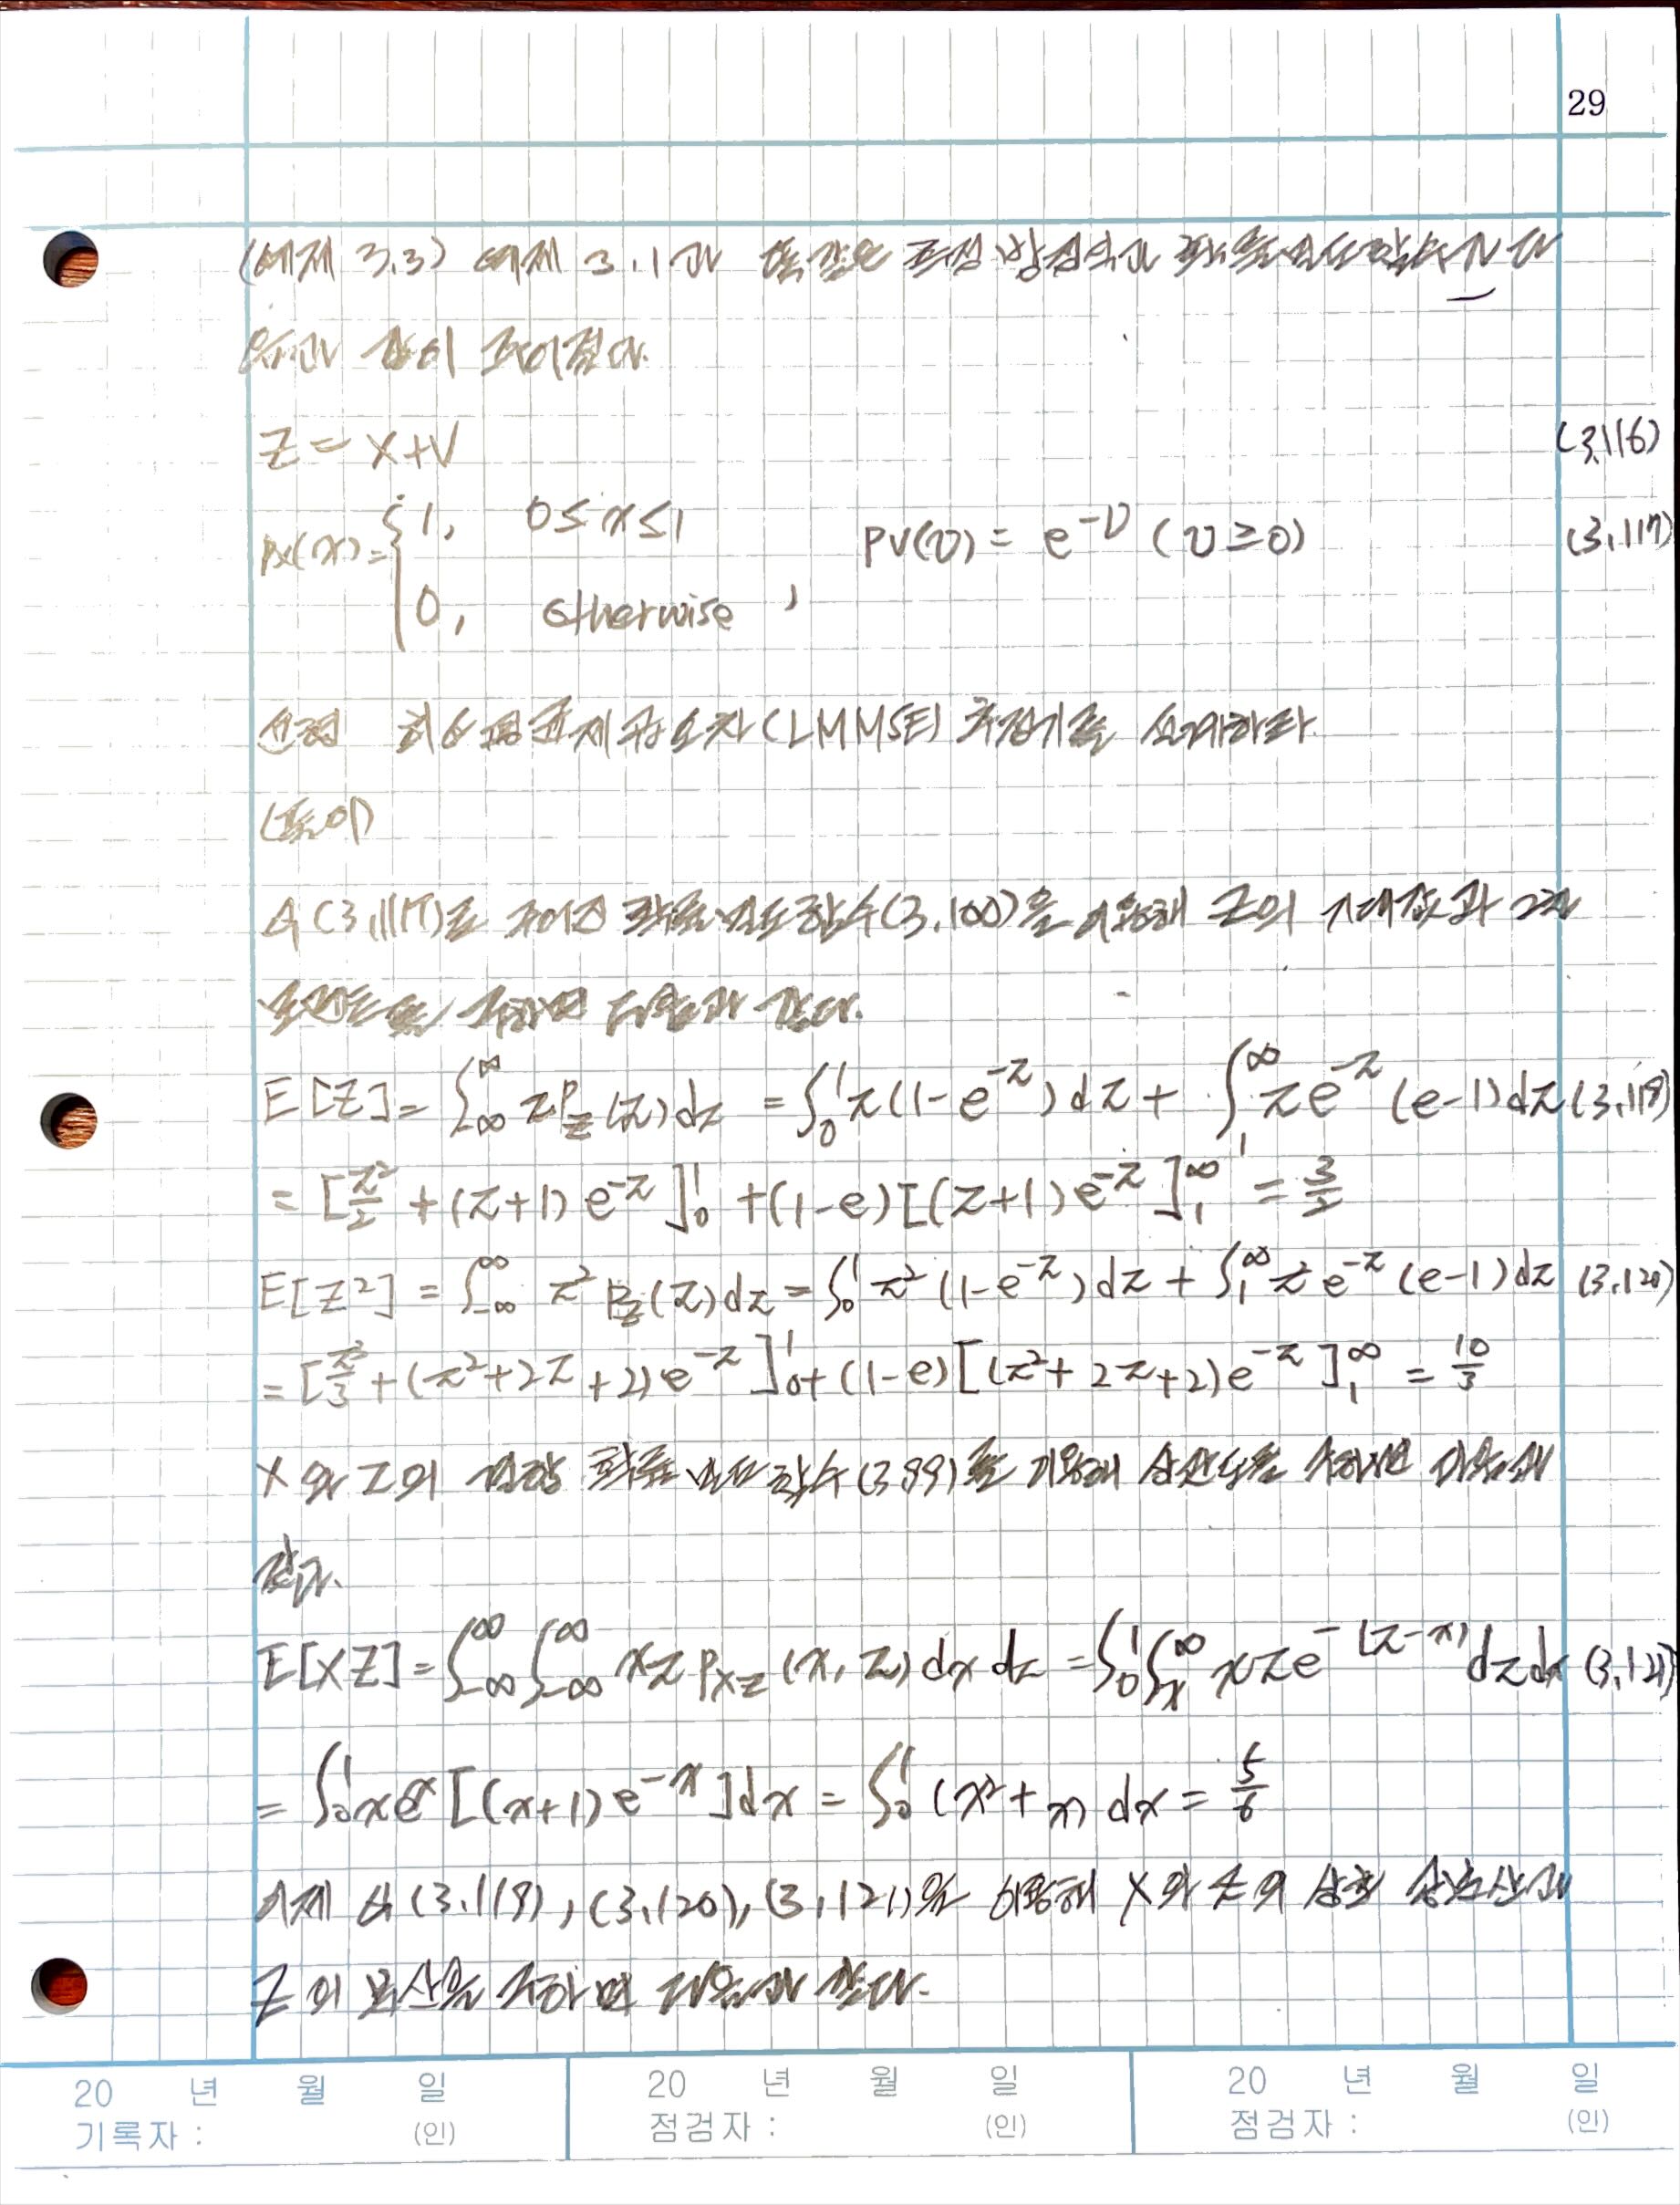 29
(예제 3.3) 예제 3.1과 똑같은 측정 방정식과 확률밀도함수가 다
음과 같이 주어졌다.
Z = X+V (3.116)
p_X(x) = { 1, 0≤x≤1
0, otherwise , p_V(v) = e^{-v} (v≥0) (3.117)
선형 최소평균제곱오차(LMMSE) 추정기를 설계하라.
(풀이)
식 (3.117)로 주어진 확률밀도함수(3.100)을 이용해 Z의 기대값과 2차
모멘트를 구하면 다음과 같다.
E[Z] = ∫_{-∞}^{∞} z p_Z(z) dz = ∫_0^1 z(1-e^{-z}) dz + ∫_1^∞ z e^{-z} (e-1) dz (3.119)
= [z²/2 + (z+1) e^{-z}]_0^1 + (1-e) [(z+1) e^{-z}]_1^∞ = 3/2
E[Z²] = ∫_{-∞}^{∞} z² p_Z(z) dz = ∫_0^1 z² (1-e^{-z}) dz + ∫_1^∞ z² e^{-z} (e-1) dz (3.120)
= [z³/3 + (z²+2z+2) e^{-z}]_0^1 + (1-e) [(z²+2z+2) e^{-z}]_1^∞ = 10/3
X와 Z의 결합 확률밀도함수(3.99)를 이용해 상관도를 구하면 다음과
같다.
E[XZ] = ∫_{-∞}^{∞} ∫_{-∞}^{∞} xz p_{XZ}(x, z) dx dz = ∫_0^1 ∫_x^∞ xz e^{-(z-x)} dz dx (3.121)
= ∫_0^1 x e^x [(x+1) e^{-x}] dx = ∫_0^1 (x²+x) dx = 5/6
이제 식 (3.119), (3.120), (3.121)을 이용해 X와 Z의 상호 공분산과
Z의 분산을 구하면 다음과 같다.
20 년 월 일
기록자 : (인)
20 년 월 일
점검자 : (인)
20 년 월 일
점검자 : (인)